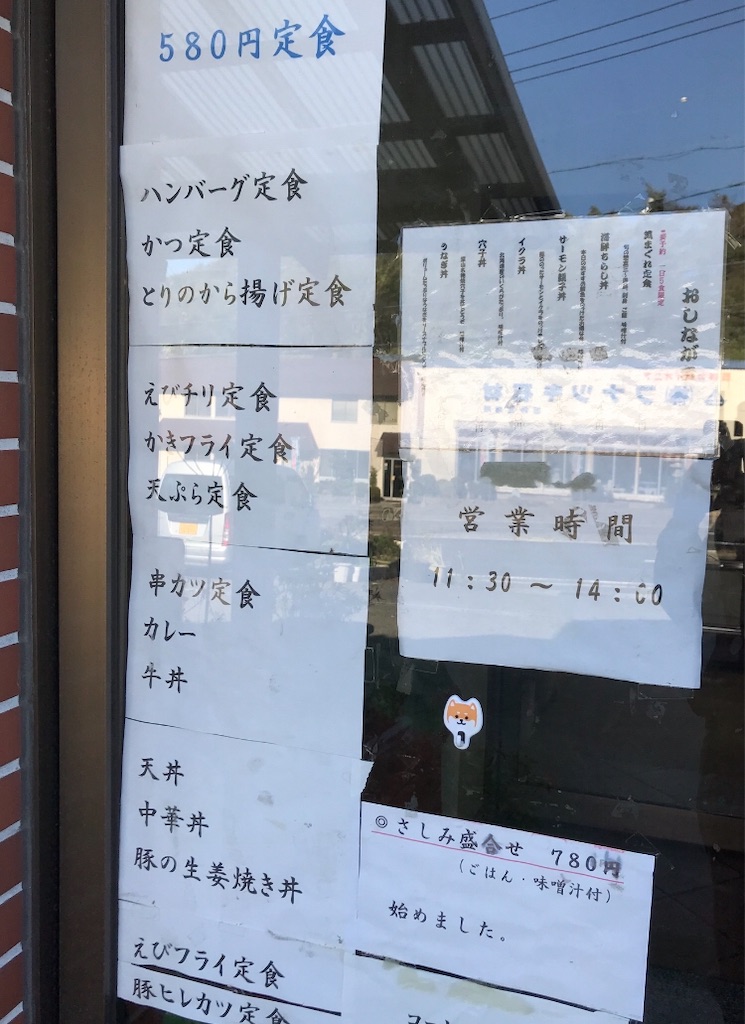 580円定食
ハンバーグ定食
かつ定食
とりのから揚げ定食
えびチリ定食
かきフライ定食
天ぷら定食
串カツ定食
カレー
牛丼
天丼
中華丼
豚の生姜焼き丼
えびフライ定食
豚ヒレカツ定食
おしながき
気まぐれ定食
海鮮ちらし丼
サーモン親子丼
イクラ丼
穴子丼
うなぎ丼
営業時間
11:30～14:00
◎さしみ盛合せ 780円
(ごはん・味噌汁付)
始めました。